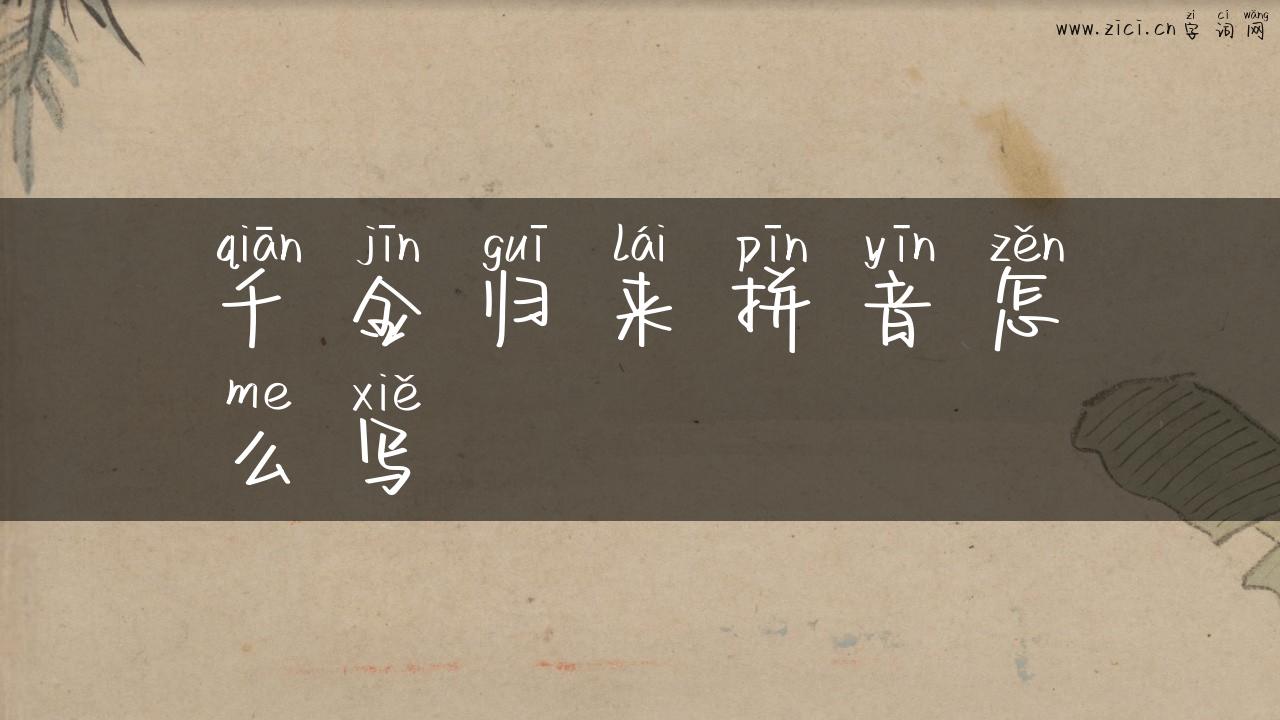 zì cí wǎng
www.zici.cn 字 词 网
qiān jīn guī lái pīn yīn zěn
千 金 归 来 拼 音 怎
me xiě
么 写